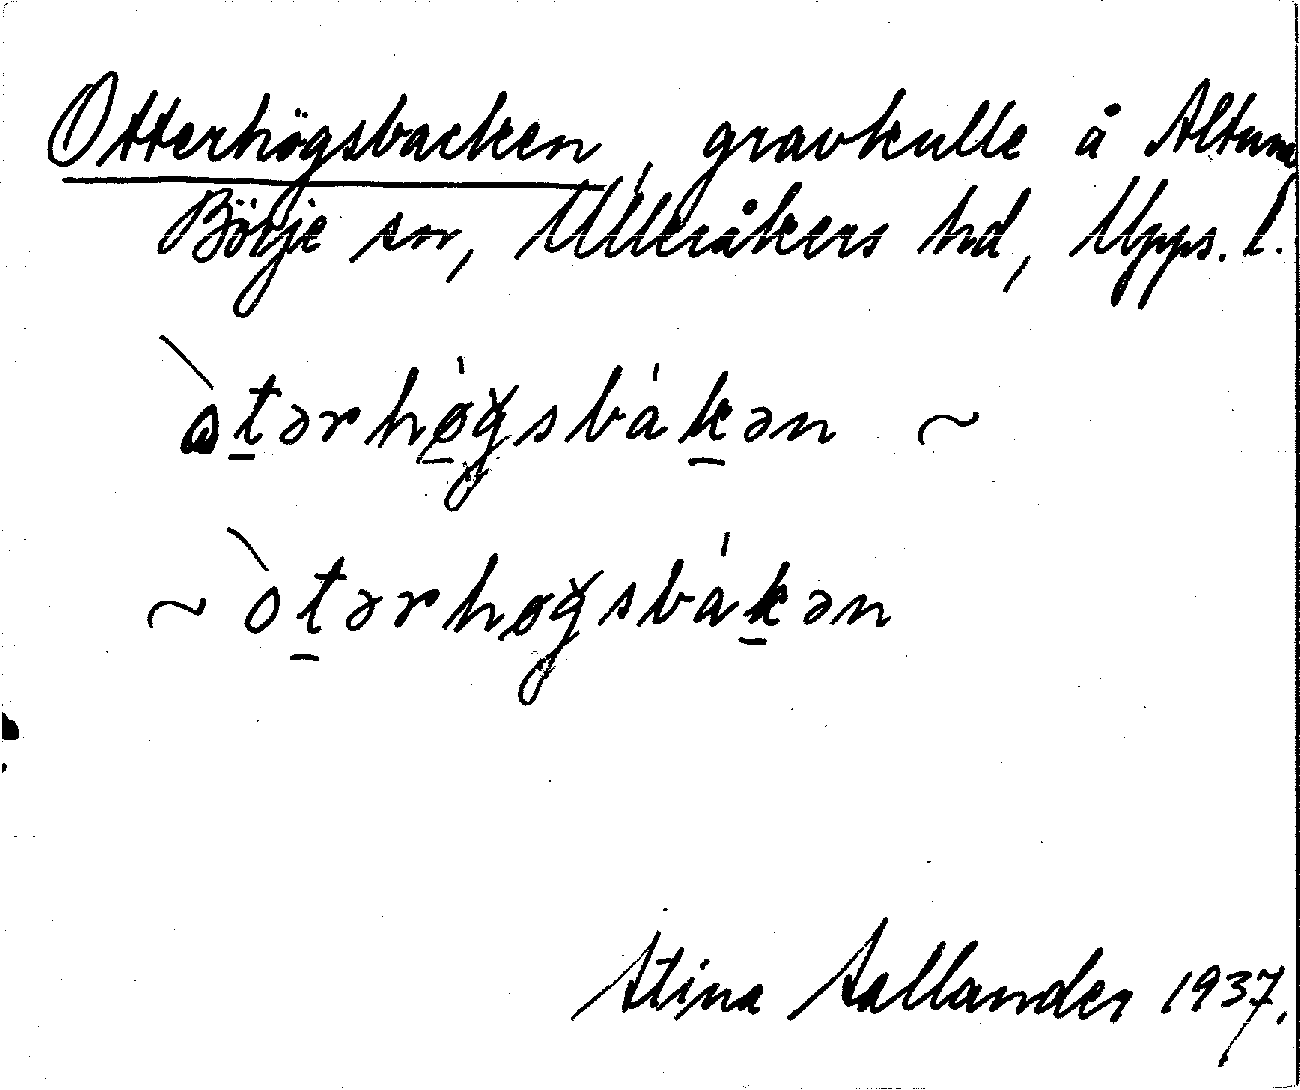 Otterhögsbacken, gravkulle å Altuna
Börje sn, Ulleråkers hd, Upps. l.
òtərhø̀gsbákən ~
~ òtərhøgsbákən
Stina Sallander 1937.